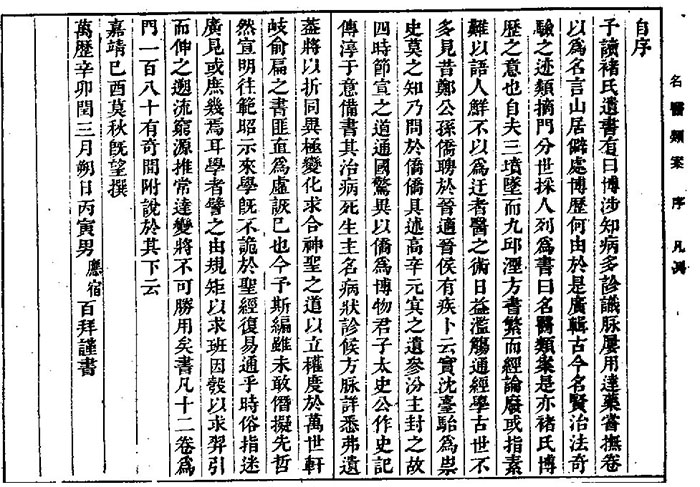 名醫類案 序 凡
自序
予讀褚氏遺書有曰博涉知病多診識脉屢用達藥嘗撫卷
以為名言山居僻處博歷何由於是廣輯古今名賢治法奇
驗之迹類摘門分世採人列為書曰名醫類案是亦褚氏博
歷之意也自夫三墳墜而九邱湮方書繁而經論廢或指素
難以語人鮮不以為迂者醫之術日益濫觴通經學古世不
多見昔鄭公孫僑聘於晉適晉侯有疾卜云實沈臺駘為祟
史莫之知乃問於僑僑具述高辛元冥之遺參汾主封之故
四時節宣之道通國驚異以僑為博物君子太史公作史記
傳淳于意備書其治病死生主名病狀診候方脉詳悉弗遺
葢將以折同異極變化求合神聖之道以立權度於萬世軒
岐俞扁之書匪直為虛詼已也今予斯編雖未敢僭擬先哲
然宣明往範昭示來學旣不詭於聖經復易通乎時俗指迷
廣見或庶幾焉耳學者譬之由規矩以求班因彀以求羿引
而伸之遡流窮源推常達變將不可勝用矣書凡十二卷為
門一百八十有奇間附說於其下云
嘉靖已酉莫秋旣望撰
萬歷辛卯閏三月朔日丙寅男應宿百拜謹書